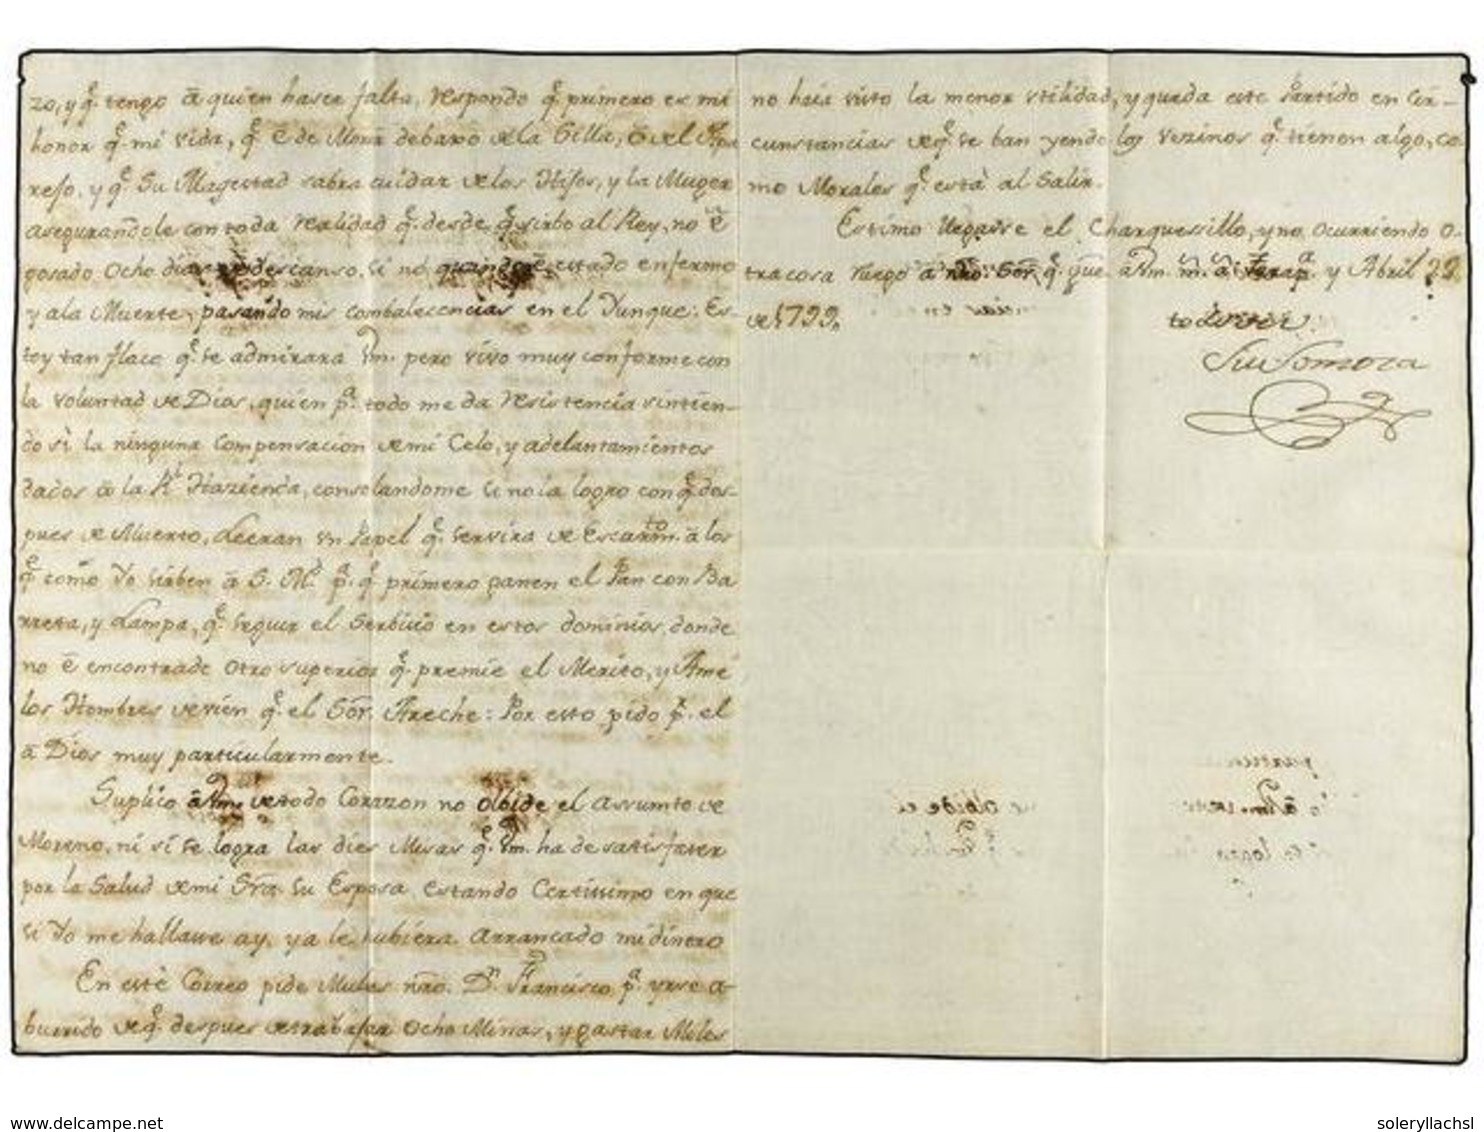 zo, y q.e tengo â quien haser falta, respondo q.e primero es mi
honor q.e mi vida, q.e ê de Morir debaxo de la Silla, ô el Apa
refo, y q.e Su Magestad sabra cuidar de los Hijos, y la Muger
asegurandole con toda realidad q.e desde q.e sirbo al Rey, no ê
gosado Ocho dias de descanso, si no quando ê estado enfermo
y a la Muerte, pasando mis combalecencias en el Yunque: Es-
toy tan flaco q.e se admirara Vm. pero vivo muy conforme con
la voluntad de Dios, quien p.a todo me da resistencia sintien-
do si la ninguna compensacion de mi Celo, y adelantamientos
dados â la R.l Hazienda, consolandome si no la logro con q.e des-
pues de Muerto, Leeran un Papel q.e servira de Escarm.to â los
q.e como Yo sirben â S. M.d p.a q.e primero ganen el Pan con Ba
rreta, y Lampa, q.e seguir el Serbicio en estos dominios, donde
no ê encontrado Otro superior q.e premie el Merito, y Ame
los Hombres de vien q.e el S.or Areche: Por esto pido p.r el
â Dios muy particularmente.
Suplico â Vm. de todo Corazon no olbide el assumto de
Moreno, ni si se logra las dies Misas q.e Vm. ha de satisfacer
por la Salud de mi S.ra su Esposa, Estando Certissimo en que
si Yo me hallase ay, ya le hubiera arrancado mi dinero
En este Correo pide Mulas nro. D.n Francisco p.a yrse a-
burrido de q.e despues de trabajar Ocho Minas, y gastar Miles
no haia visto la menor utilidad, y queda este Partido en Cir-
cunstancias de q.e se ban yendo los Vezinos q.e tienen algo, co
mo Morales q.e està al Salir.
Estimo llegasse el Charquessillo, y no ocurriendo O-
tra cosa ruego â nro. Sor. q.e gue. â Vm. m.s a.s y Abril 22
de 1799.
Su Somoza
www.delcampe.net
soleryllachsl